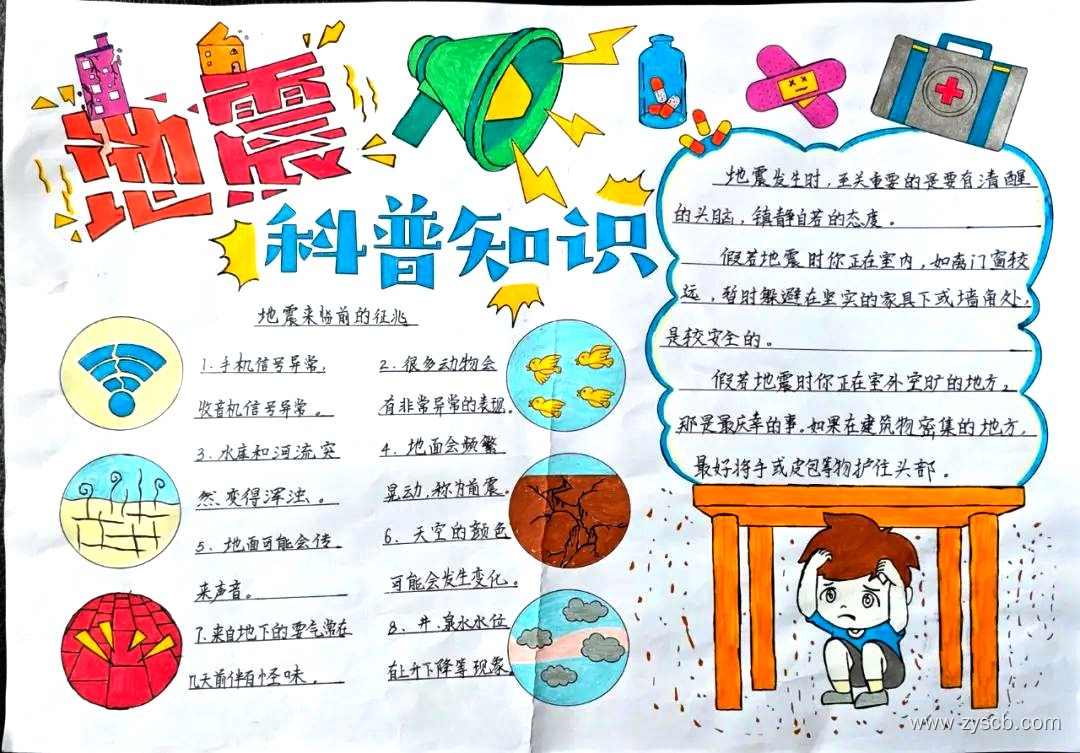 地震
科普知识
地震来临前的征兆
1. 手机信号异常,
收音机信号异常。
2. 很多动物会
有非常异常的表现。
3. 水库和河流突
然变得浑浊。
4. 地面会频繁
晃动,称为前震。
5. 地面可能会传
来声音。
6. 天空的颜色
可能会发生变化。
7. 来自地下的雾气常在
几天前伴有怪味。
8. 井、泉水水位
有上升下降等现象
地震发生时,至关重要的是要有清醒
的头脑,镇静自若的态度。
假若地震时你正在室内,如离门窗较
远,暂时躲避在坚实的家具下或墙角处,
是较安全的。
假若地震时你正在室外空旷的地方,
那是最庆幸的事,如果在建筑物密集的地方,
最好将手或皮包等物护住头部。
www.zyscb.com